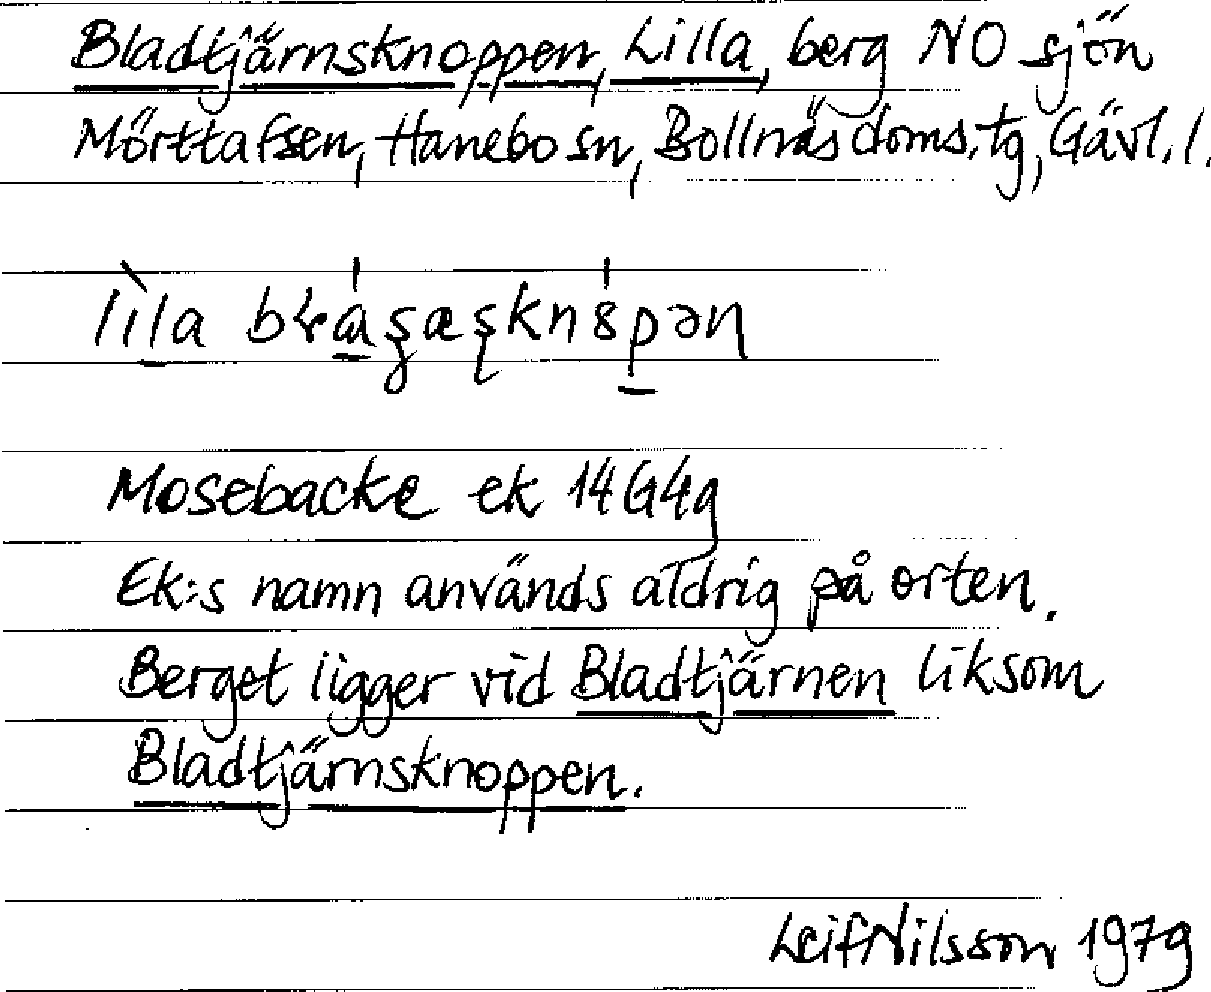 Bladtjärnsknoppen, Lilla, berg NO sjön
Mörttafsen, Hanebo sn, Bollnäs doms. tg, Gävl. l.
lìla
Mosebacke ek 14G4g
Ek:s namn används aldrig på orten.
Berget ligger vid Bladtjärnen liksom
Bladtjärnsknoppen.
Leif Nilsson 1979